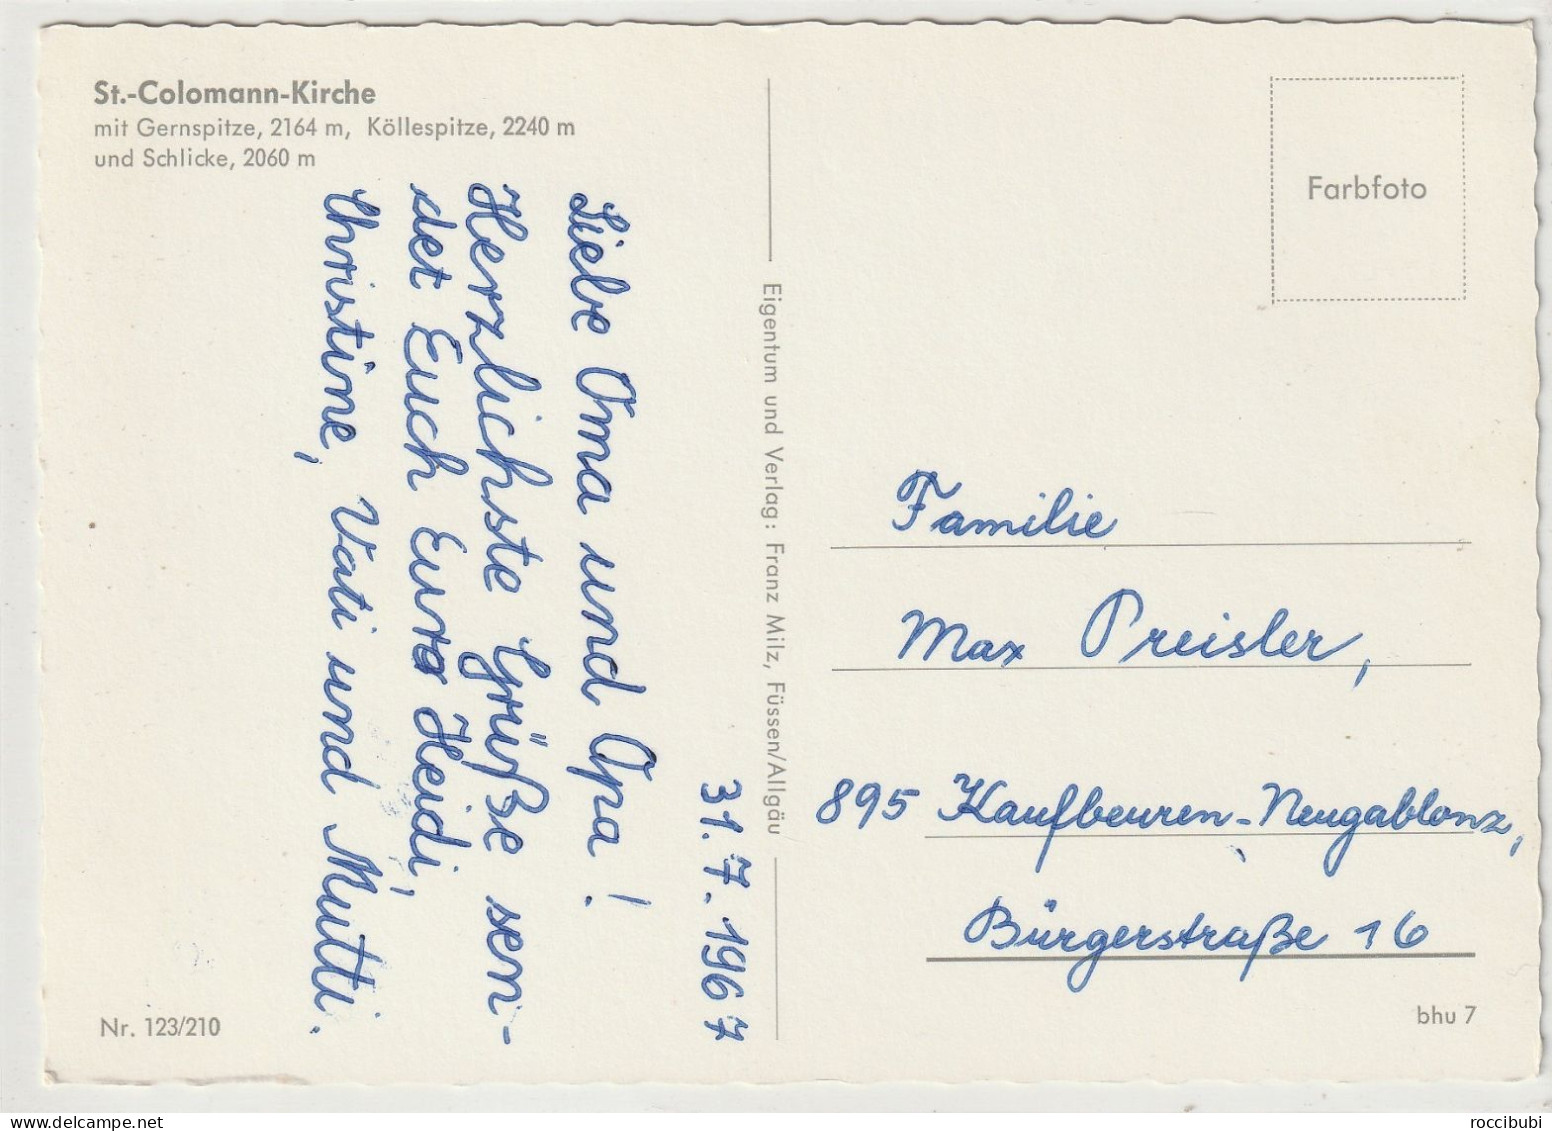 St.-Colomann-Kirche
mit Gernspitze, 2164 m, Köllespitze, 2240 m
und Schlicke, 2060 m
31.7.1967
Liebe Oma und Opa!
Herzlichste Grüße sen-
det Euch Eure Heidi,
Christine, Vati und Mutti.
Nr. 123/210
Eigentum und Verlag: Franz Milz, Füssen/Allgäu
Farbfoto
Familie
Max Preisler,
895 Kaufbeuren-Neugablonz,
Bürgerstraße 16
bhu 7
roccibubi